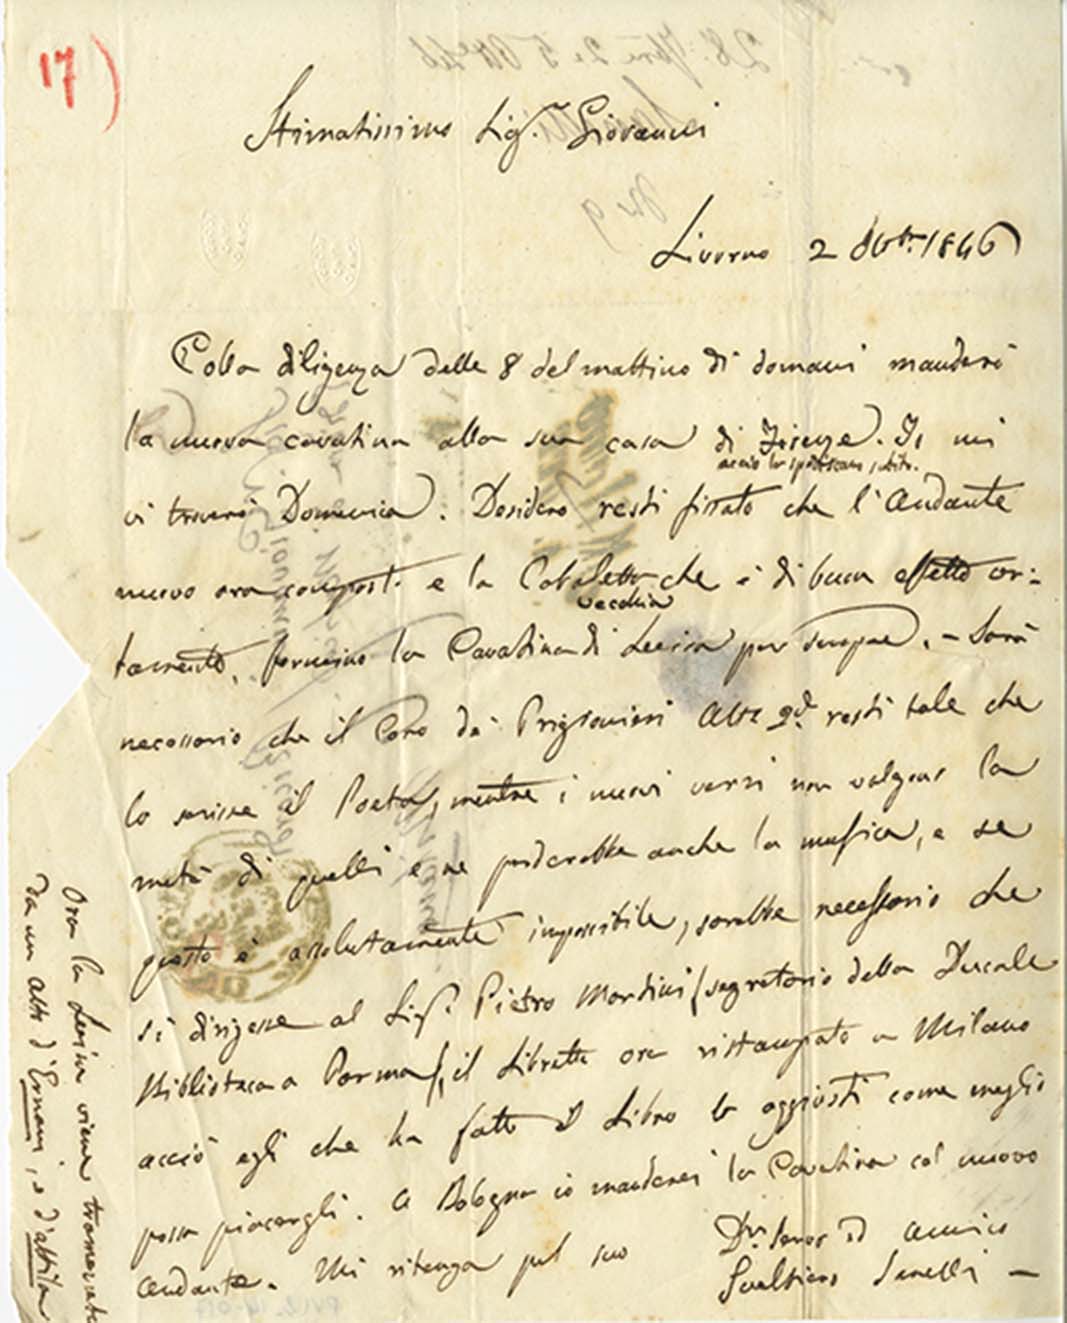 17)
Stimatissimo Sig.r Giovanni
Livorno 2 8bre 1846
Colla diligenza delle 8 del mattino di domani manderò
la nuova cavatina alla sua casa di Firenze. Io mi
acciò la spediscano subito.
vi troverò Domenica. Desidero resti fissato che l'Andante
nuovo ora composto e la Cabaletta che è di buon effetto cer=
vecchia
tamente, formino la Cavatina di Leeira per sempre. – Sarà
necessario che il Coro de' Prigionieri Atto 2do resti tale che
lo scrisse il Poeta, mentre i nuovi versi non valgono la
metà di quelli e ne perderebbe anche la musica, e se
questo è assolutamente impossibile, sarebbe necessario che
si dirigesse al Sig.r Pietro Martini (segretario della Ducale
Biblioteca a Parma), il Libretto ora ristampato a Milano
acciò egli che ha fatto il Libro lo aggiusti come meglio
possa piacergli. A Bologna io manderei la Cavatina col nuovo
andante. Mi ritenga pel suo
Dv. Servo ed amico
Gualtiero Sanelli –
Ora la Leeira viene tramezzata
da un atto d'Ernani, o d'Attila